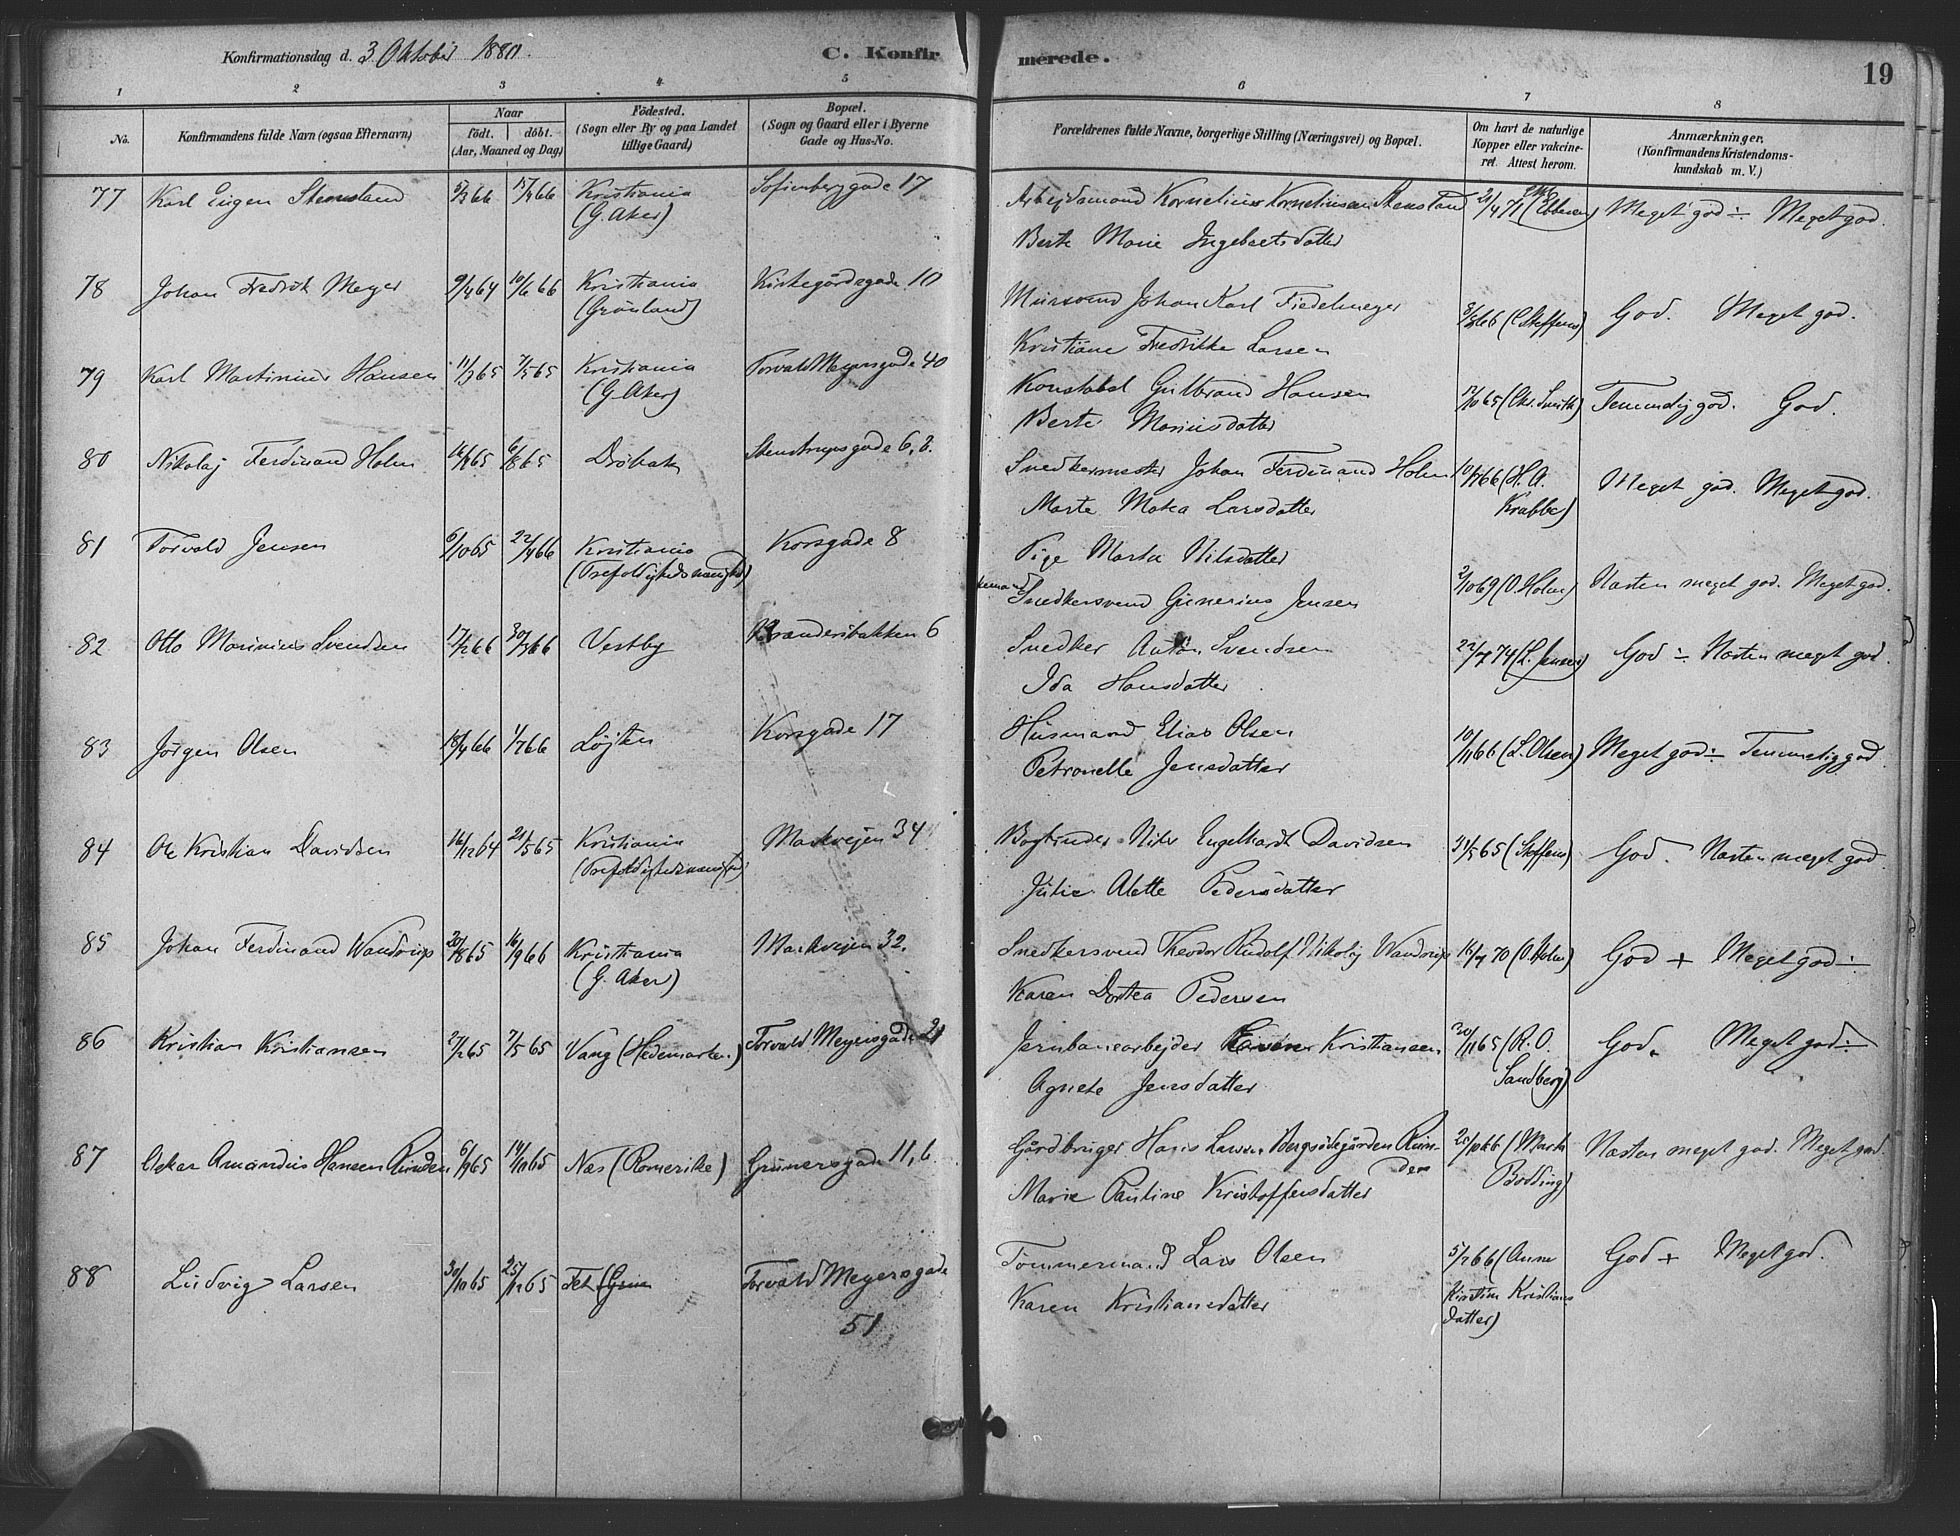 Konfirmationsdag d. 3 Oktober 1880.
C. Konfirmerede.
19
1 2 3 4 5 6 7 8
No.
Konfirmandens fulde Navn (ogsaa Efternavn)
Naar
födt. döbt.
(Aar, Maaned og Dag)
Födested.
(Sogn eller By og paa Landet
tillige Gaard)
Bopæl.
(Sogn og Gaard eller i Byerne
Gade og Hus-No.
Forældrenes fulde Navne, borgerlige Stilling (Næringsvei) og Bopæl.
Om havt de naturlige
Kopper eller vakcineret.
Attest herom.
Anmærkninger.
(Konfirmandens Kristendomskundskab
m. V.)
77 Karl Eugen Stensland 5/3 66 15/4 66 Kristiania Sofienberggade 17 Arbejdsmand Kornelius Korneliussen Stensland 21/4 71 (Ebbesen) Meget god ÷ Meget god.
(G. Aker) Berte Marie Ingebretsdatter
78 Johan Fredrik Meyer 9/4 64 10/6 66 Kristiania Kirkegårdsgade 10 Mursvend Johan Karl Fiedelmeyer 3/5 66 (C. Steffens) God. Meget god.
(Grønland) Kristiane Fredrikke Larsen
79 Karl Martinius Hansen 11/3 65 7/5 65 Kristiania Torvald Meyersgade 40 Konstabel Gulbrand Hansen 12/10 65 (Chr. Smith) Temmelig god. God.
(G. Aker) Berte Mariusdatter
80 Nikolaj Ferdinand Holm 6/8 65 Drøbak Stenstrupsgade 6, 8. Snedkermester Johan Ferdinand Holm 10/7 66 (H. A. Krabbe) Meget god. Meget god.
Marte Larsdatter
81 Torvald Jensen 6/10 65 22/4 66 Kristiania Korsgade 8 Pige Marta Nilsdatter
(Trefoldighedsmenighed) Snedkersvend Gunerius Jensen 2/10 69 (O. Holm) Næsten meget god. Meget god.
82 Otto Marinius Svendsen 17/2 66 30/3 66 Vestby Brænderibakken 6 Snedker Anton Svendsen 22/7 74 (L. Jensen) God ÷ Næsten meget god.
Ida Hansdatter
83 Jørgen Olsen 18/4 66 1/7 66 Løjten Korsgade 17 Husmand Elias Olsen 10/11 66 (L. Olsen) Meget god ÷ Temmelig god.
Petronelle Jensdatter
84 Ole Kristian Davidsen 16/12 64 21/5 65 Kristiania Markvejen 34 Bogbinder Nils Engelhardt Davidsen 31/5 65 (Steffens) God. Næsten meget god
(Trefoldighedsmenighed) Julie Alette Pedersdatter
85 Johan Ferdinand Wandrup 20/8 65 16/9 66 Kristiania Markvejen 32. Snedkersvend Theodor Rudolf Nikolaj Wandrup 15/7 70 (O. Holm) God + Meget god ÷
(G. Aker) Karen Dortea Pedersen
86 Kristian Kristiansen 27/2 65 7/5 65 Vang (Hedemarken) Torvald Meyersgade 21 Jernbanearbejder Even Kristiansen 30/11 65 (R. O. Sandberg) God. Meget god ÷
Agnete Jensdatter
87 Oskar Amandus Hansen Runden 6/9 65 14/10 65 Næs (Romerike) Grünersgade 11, 6. Gårdbruger Hans Larsen Bergsødegården Runden 25/10 66 (Marth. Bødding) Næsten meget god. Meget god.
Marie Pauline Kristoffersdatter
88 Ludvig Larsen 30/10 65 25/12 65 Fet Torvald Meyersgade Tømmermand Lars Olsen 5/2 66 (Anne God + Meget god.
51 Karen Kristiansdatter Kirstine Kristiansdatter)